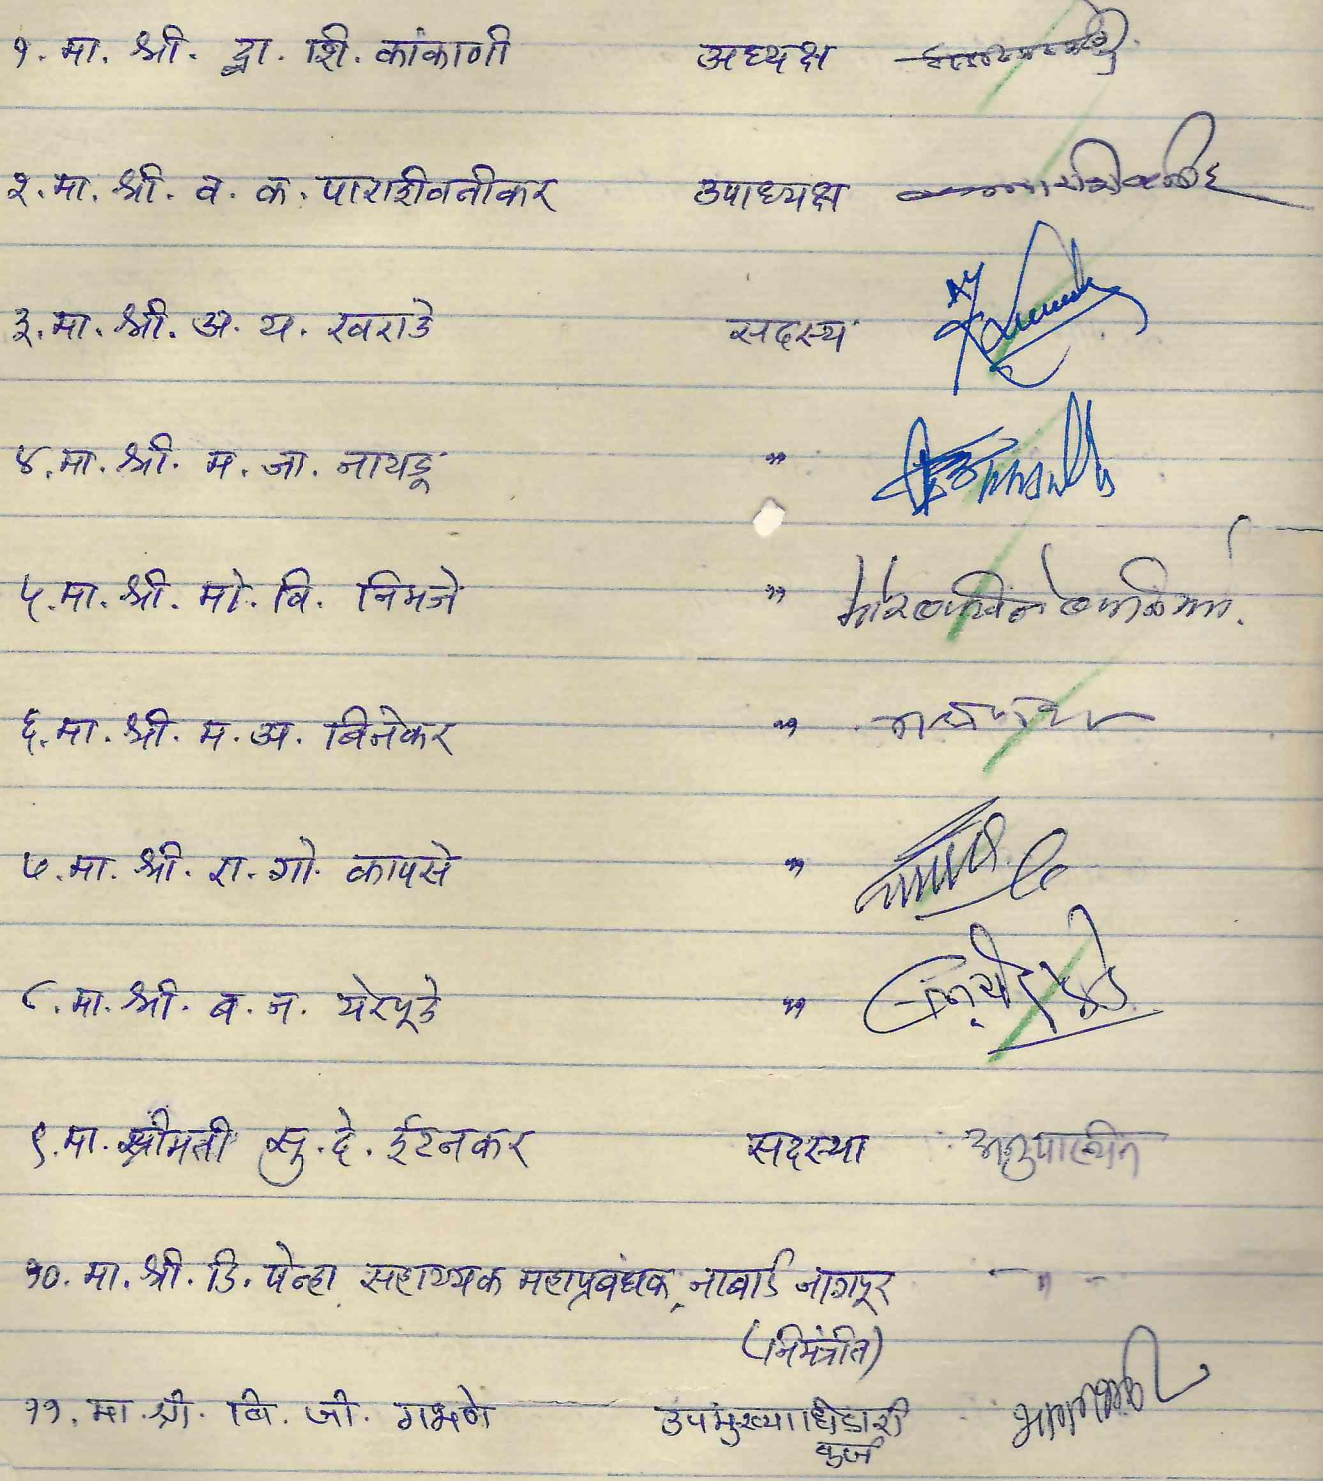 १. मा. श्री. द्वा. शि. कांकाणी अध्यक्ष
२. मा. श्री. व. क. पाराशीवनीकर उपाध्यक्ष
३. मा. श्री. अ. य. खराडे सदस्य
४. मा. श्री. म. जा. नायडू "
५. मा. श्री. मो. वि. निमजे "
६. मा. श्री. म. अ. बिनेकर "
७. मा. श्री. रा. गो. कापसे "
८. मा. श्री. ब. न. येरपूडे "
९. मा. श्रीमती सु. दे. ईटनकर सदस्या अनुपस्थित
१०. मा. श्री. डि. पेन्हा सहाय्यक महाप्रबंधक, नाबार्ड नागपूर "
(निमंत्रीत)
११. मा. श्री. वि. जी. गभणे उपमुख्याधिकारी
कर्ज